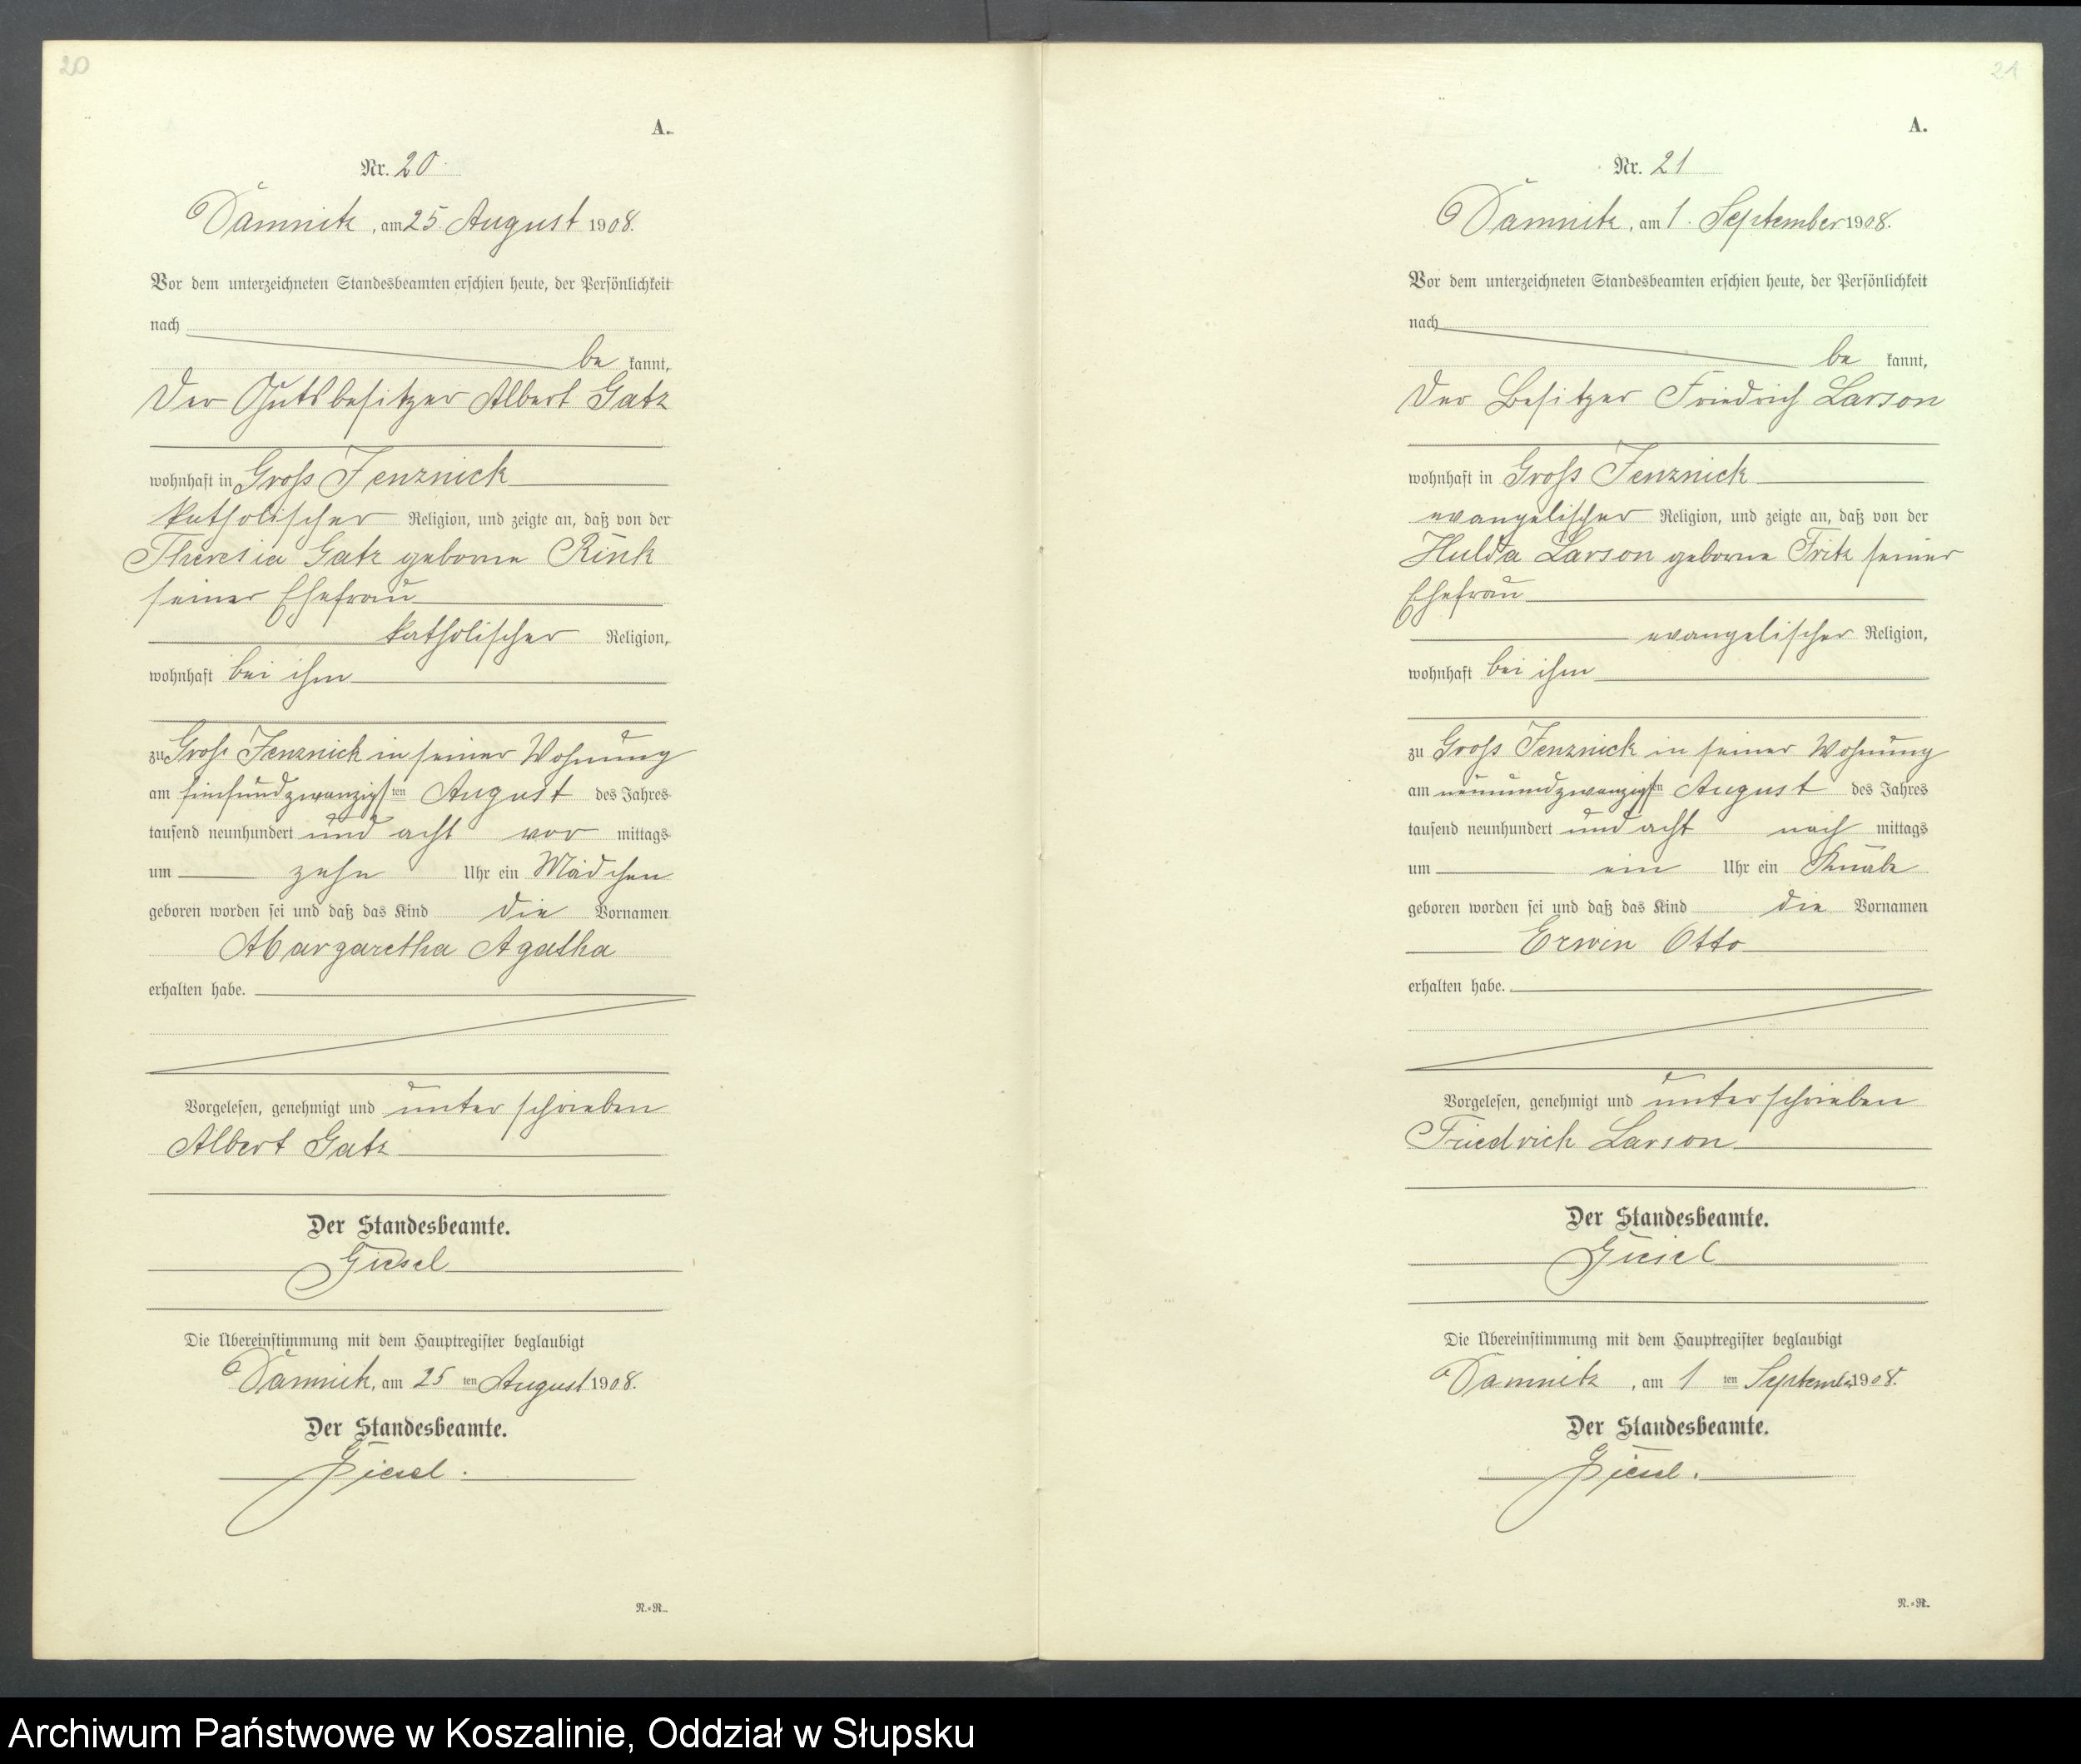 20
A.
Nr. 20
Damnitz, am 25. August 1908.
Vor dem unterzeichneten Standesbeamten erschien heute, der Persönlichkeit
nach
be kannt,
der Gutsbesitzer Albert Gatz
wohnhaft in Groß Jenznick
katholischer Religion, und zeigte an, daß von der
Theresia Gatz geborne Rink
seiner Ehefrau
katholischer Religion,
wohnhaft bei ihm
zu Groß Jenznick in seiner Wohnung
am fünfundzwanzigsten August des Jahres
tausend neunhundert und acht vor mittags
um zehn Uhr ein Mädchen
geboren worden sei und daß das Kind die Vornamen
Margaretha Agatha
erhalten habe.
Vorgelesen, genehmigt und unterschrieben
Albert Gatz
Der Standesbeamte.
Giesel
Die Übereinstimmung mit dem Hauptregister beglaubigt
Damnitz, am 25 ten August 1908.
Der Standesbeamte.
Giesel.
N.=R.
21
A.
Nr. 21
Damnitz, am 1. September 1908.
Vor dem unterzeichneten Standesbeamten erschien heute, der Persönlichkeit
nach
be kannt,
der Besitzer Friedrich Larson
wohnhaft in Groß Jenznick
evangelischer Religion, und zeigte an, daß von der
Hulda Larson geborne Fritz seiner
Ehefrau
evangelischer Religion,
wohnhaft bei ihm
zu Groß Jenznick in seiner Wohnung
am neunundzwanzigsten August des Jahres
tausend neunhundert und acht nach mittags
um ein Uhr ein Knabe
geboren worden sei und daß das Kind die Vornamen
Erwin Otto
erhalten habe.
Vorgelesen, genehmigt und unterschrieben
Friedrich Larson
Der Standesbeamte.
Giesel
Die Übereinstimmung mit dem Hauptregister beglaubigt
Damnitz, am 1 ten September 1908.
Der Standesbeamte.
Giesel.
N.=R.
Archiwum Państwowe w Koszalinie, Oddział w Słupsku